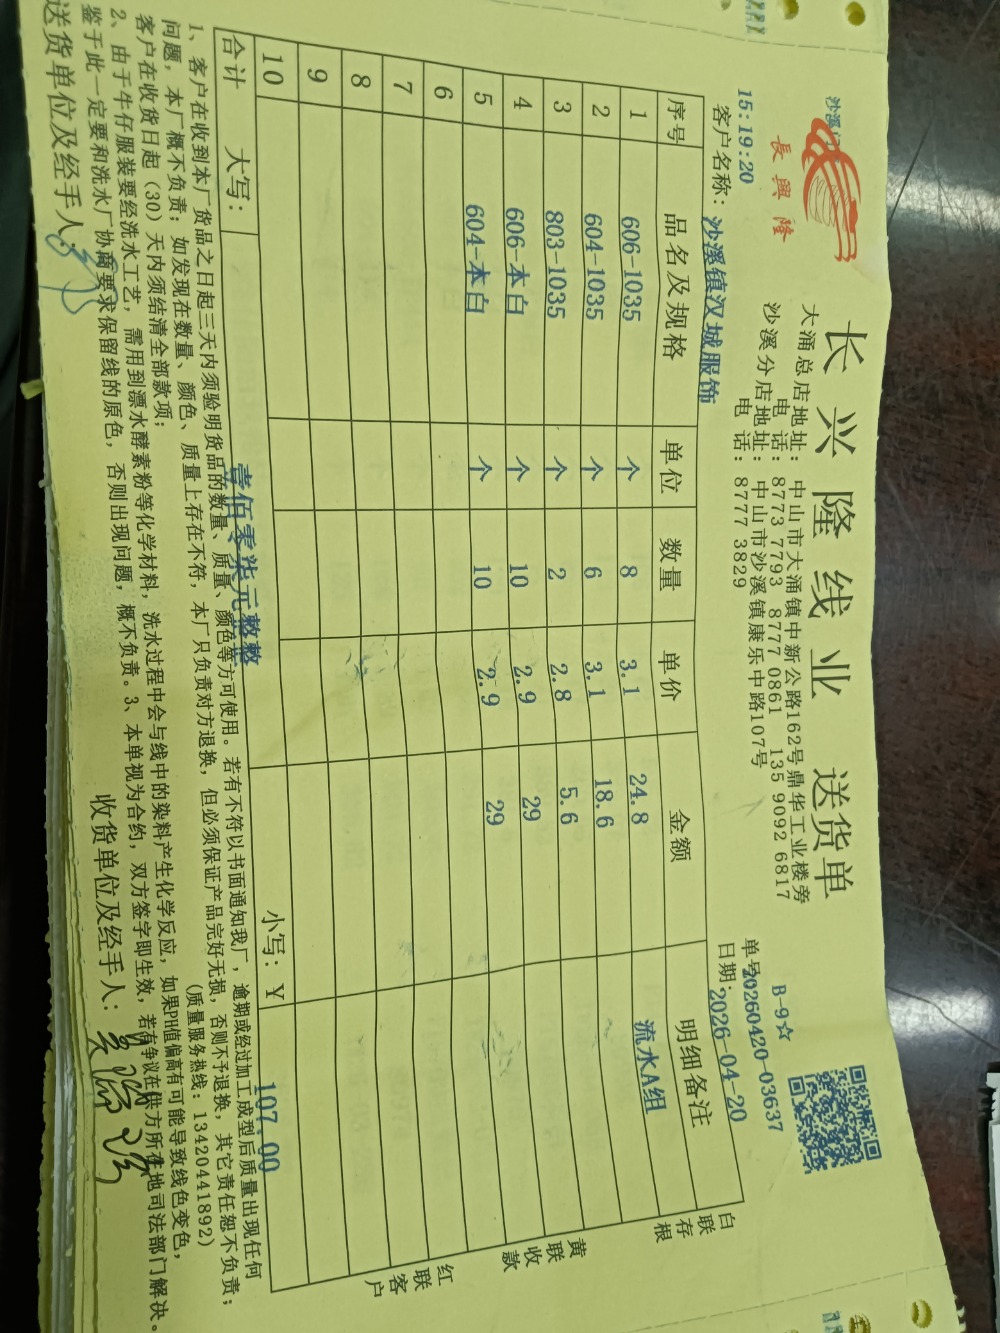 長興隆
长兴隆线业 送货单
大涌总店地址：中山市大涌镇中新公路162号鼎华工业楼旁
电 话：8773 7793 8777 0861 135 9092 6817
沙溪分店地址：中山市沙溪镇康乐中路107号
电 话：8777 3829
B-9☆
单号20260420-03637
日期：2026-04-20
15:19:20
客户名称：沙溪镇汉城服饰
序号 品名及规格 单位 数量 单价 金额 明细备注
1 606-1035 个 8 3.1 24.8 流水A组
2 604-1035 个 6 3.1 18.6
3 803-1035 个 2 2.8 5.6
4 606-本白 个 10 2.9 29
5 604-本白 个 10 2.9 29
6
7
8
9
10
合计 大写：壹佰零柒元整整 小写：Y 107.00
白联存根
黄联收款
红联客户
1、客户在收到本厂货品之日起三天内须验明货品的数量、质量、颜色等方可使用。若有不符以书面通知我厂，逾期或经过加工成型后质量出现任何
问题，本厂概不负责；如发现在数量、颜色、质量上存在不符，本厂只负责对方退换，但必须保证产品完好无损，否则不予退换，其它责任恕不负责；
客户在收货日起（30）天内须结清全部款项；
（质量服务热线：13420441892）
2、由于牛仔服装要经洗水工艺，需用到漂水酵素粉等化学材料，洗水过程中会与线中的染料产生化学反应，如果PH值偏高有可能导致线色变色，
鉴于此一定要和洗水厂协商要求保留线的原色，否则出现问题，概不负责。3、本单视为合约，双方签字即生效，若有争议在供方所在地司法部门解决。
送货单位及经手人： 收货单位及经手人：